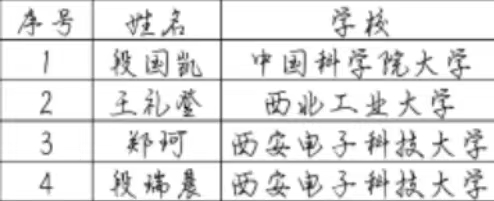 序号 姓名 学校
1 段国凯 中国科学院大学
2 王礼登 西北工业大学
3 郑珂 西安电子科技大学
4 段瑞晨 西安电子科技大学